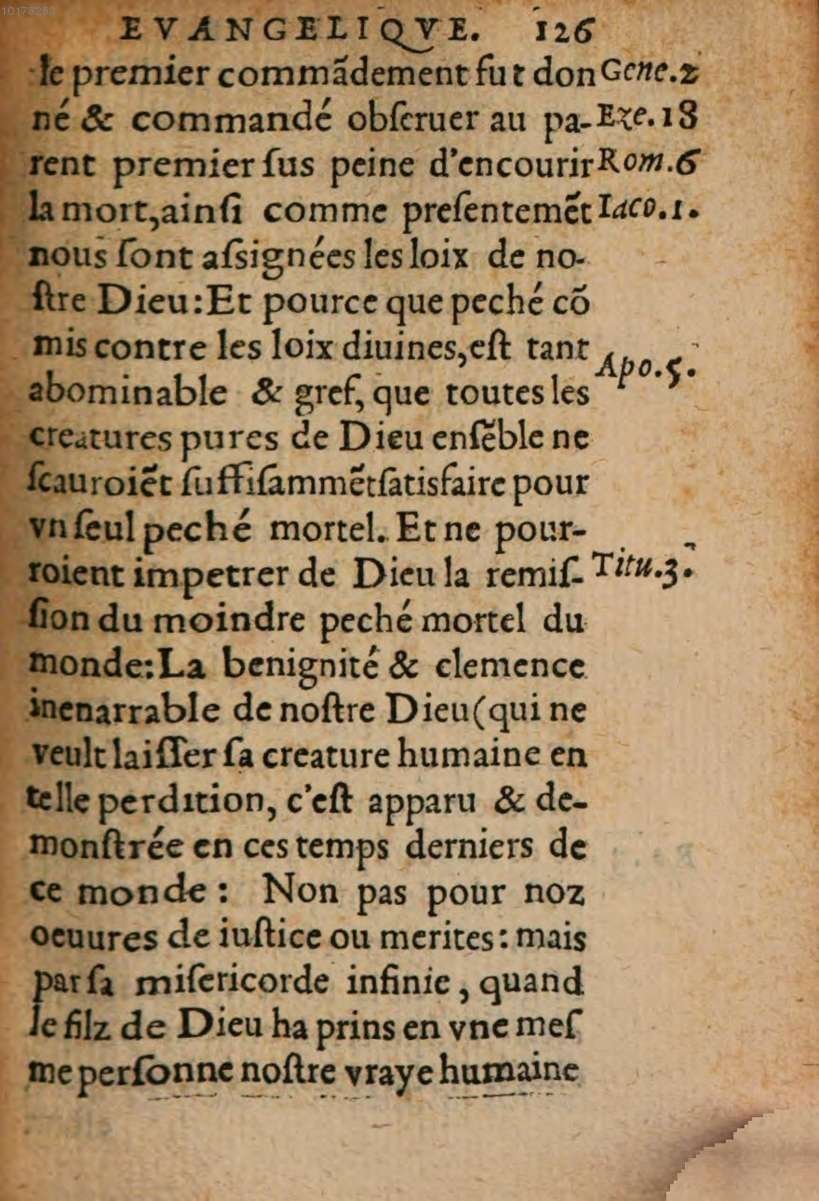 10173250
EVANGELIQVE. 126
le premier commãdement fut don Gene.2
né & commandé obſeruer au pa- Eze.18
rent premier ſus peine d'encourir Rom.6
la mort,ainſi comme preſentemẽt Iaco.1.
nous ſont aſsignées les loix de no-
ſtre Dieu:Et pource que peché cõ
mis contre les loix diuines,eſt tant
Apo.5.
abominable & gref, que toutes les
creatures pures de Dieu enſẽble ne
ſcauroiẽt ſuffiſammẽt ſatisfaire pour
vn ſeul peché mortel. Et ne pour-
roient impetrer de Dieu la remiſ- Titu.3.
ſion du moindre peché mortel du
monde:La benignité & clemence
inenarrable de noſtre Dieu(qui ne
veult laiſſer ſa creature humaine en
telle perdition, c'eſt apparu & de-
monſtrée en ces temps derniers de
ce monde : Non pas pour noz
oeuures de iuſtice ou merites: mais
par ſa miſericorde infinie, quand
le filz de Dieu ha prins en vne meſ
me perſonne noſtre vraye humaine